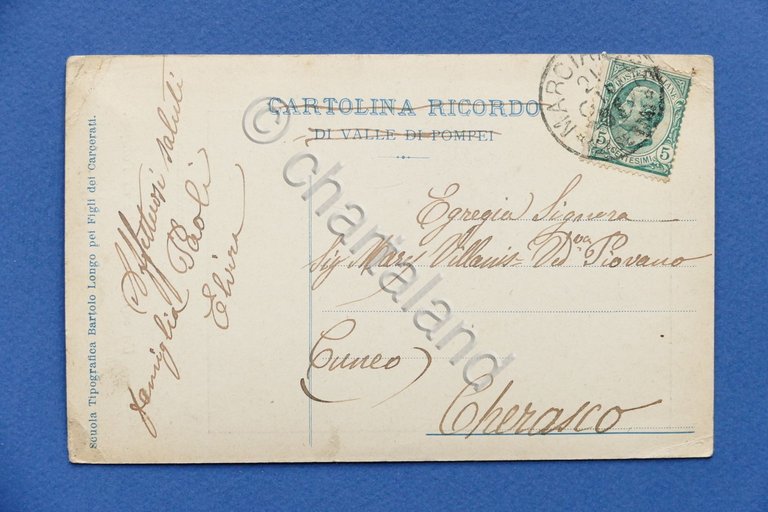 CARTOLINA RICORDO
DI VALLE DI POMPEI
MARCIA
POSTE ITALIANE
5 CENTESIMI 5
Egregia Signora
Sig Villanis Ved.va Piovano
(Cuneo)
Cherasco
Affettuosi saluti
famiglia Paoli
Elvira
Scuola Tipografica Bartolo Longo pei Figli dei Carcerati.
© chartaland